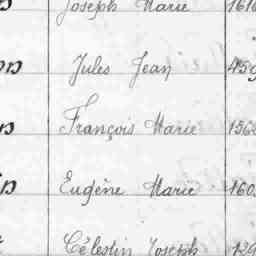 Joseph Marie 1610
Jules Jean 459
François Marie 156
Eugène Marie 160
Célestin Joseph 139